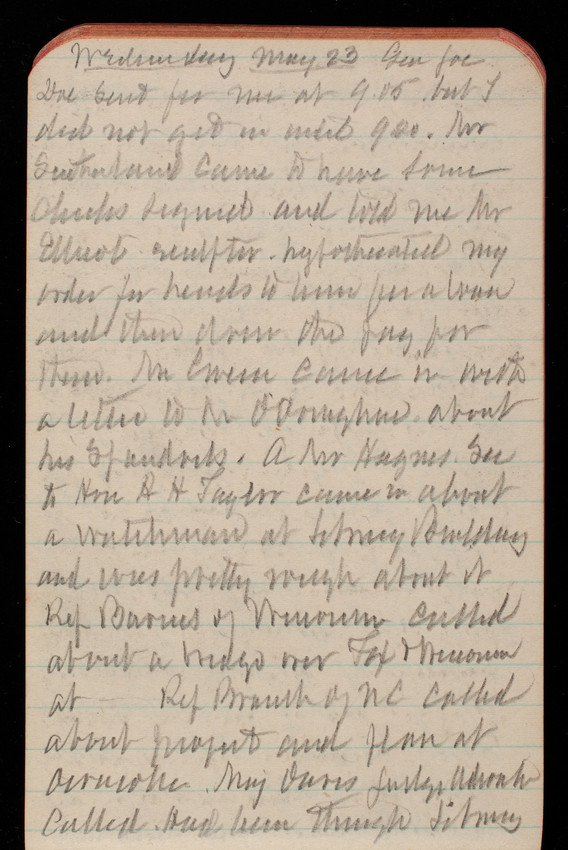 Wednesday May 23 Gen for
did not get in until 920. Mr
Sutherland came to have some
checks signed and told me Mr
Ellicott sculptor hypothecated my
order for heads to him for a loan
and then drew the pay for
them. Mr Ewen came in with
a letter to Mr O'Donoghue about
his Spandrels. A Mr Hagner Sec
to Hon A H Taylor came in about
a watchman at Library Building
and was pretty rough about it
Rep Barnes of Wisconsin called
about a bridge over Fox & Wisconsin
at Rep Branch of NC called
about project and plan at
Ocracoke. Maj Davis Judge Advocate
Called. Had been through Library